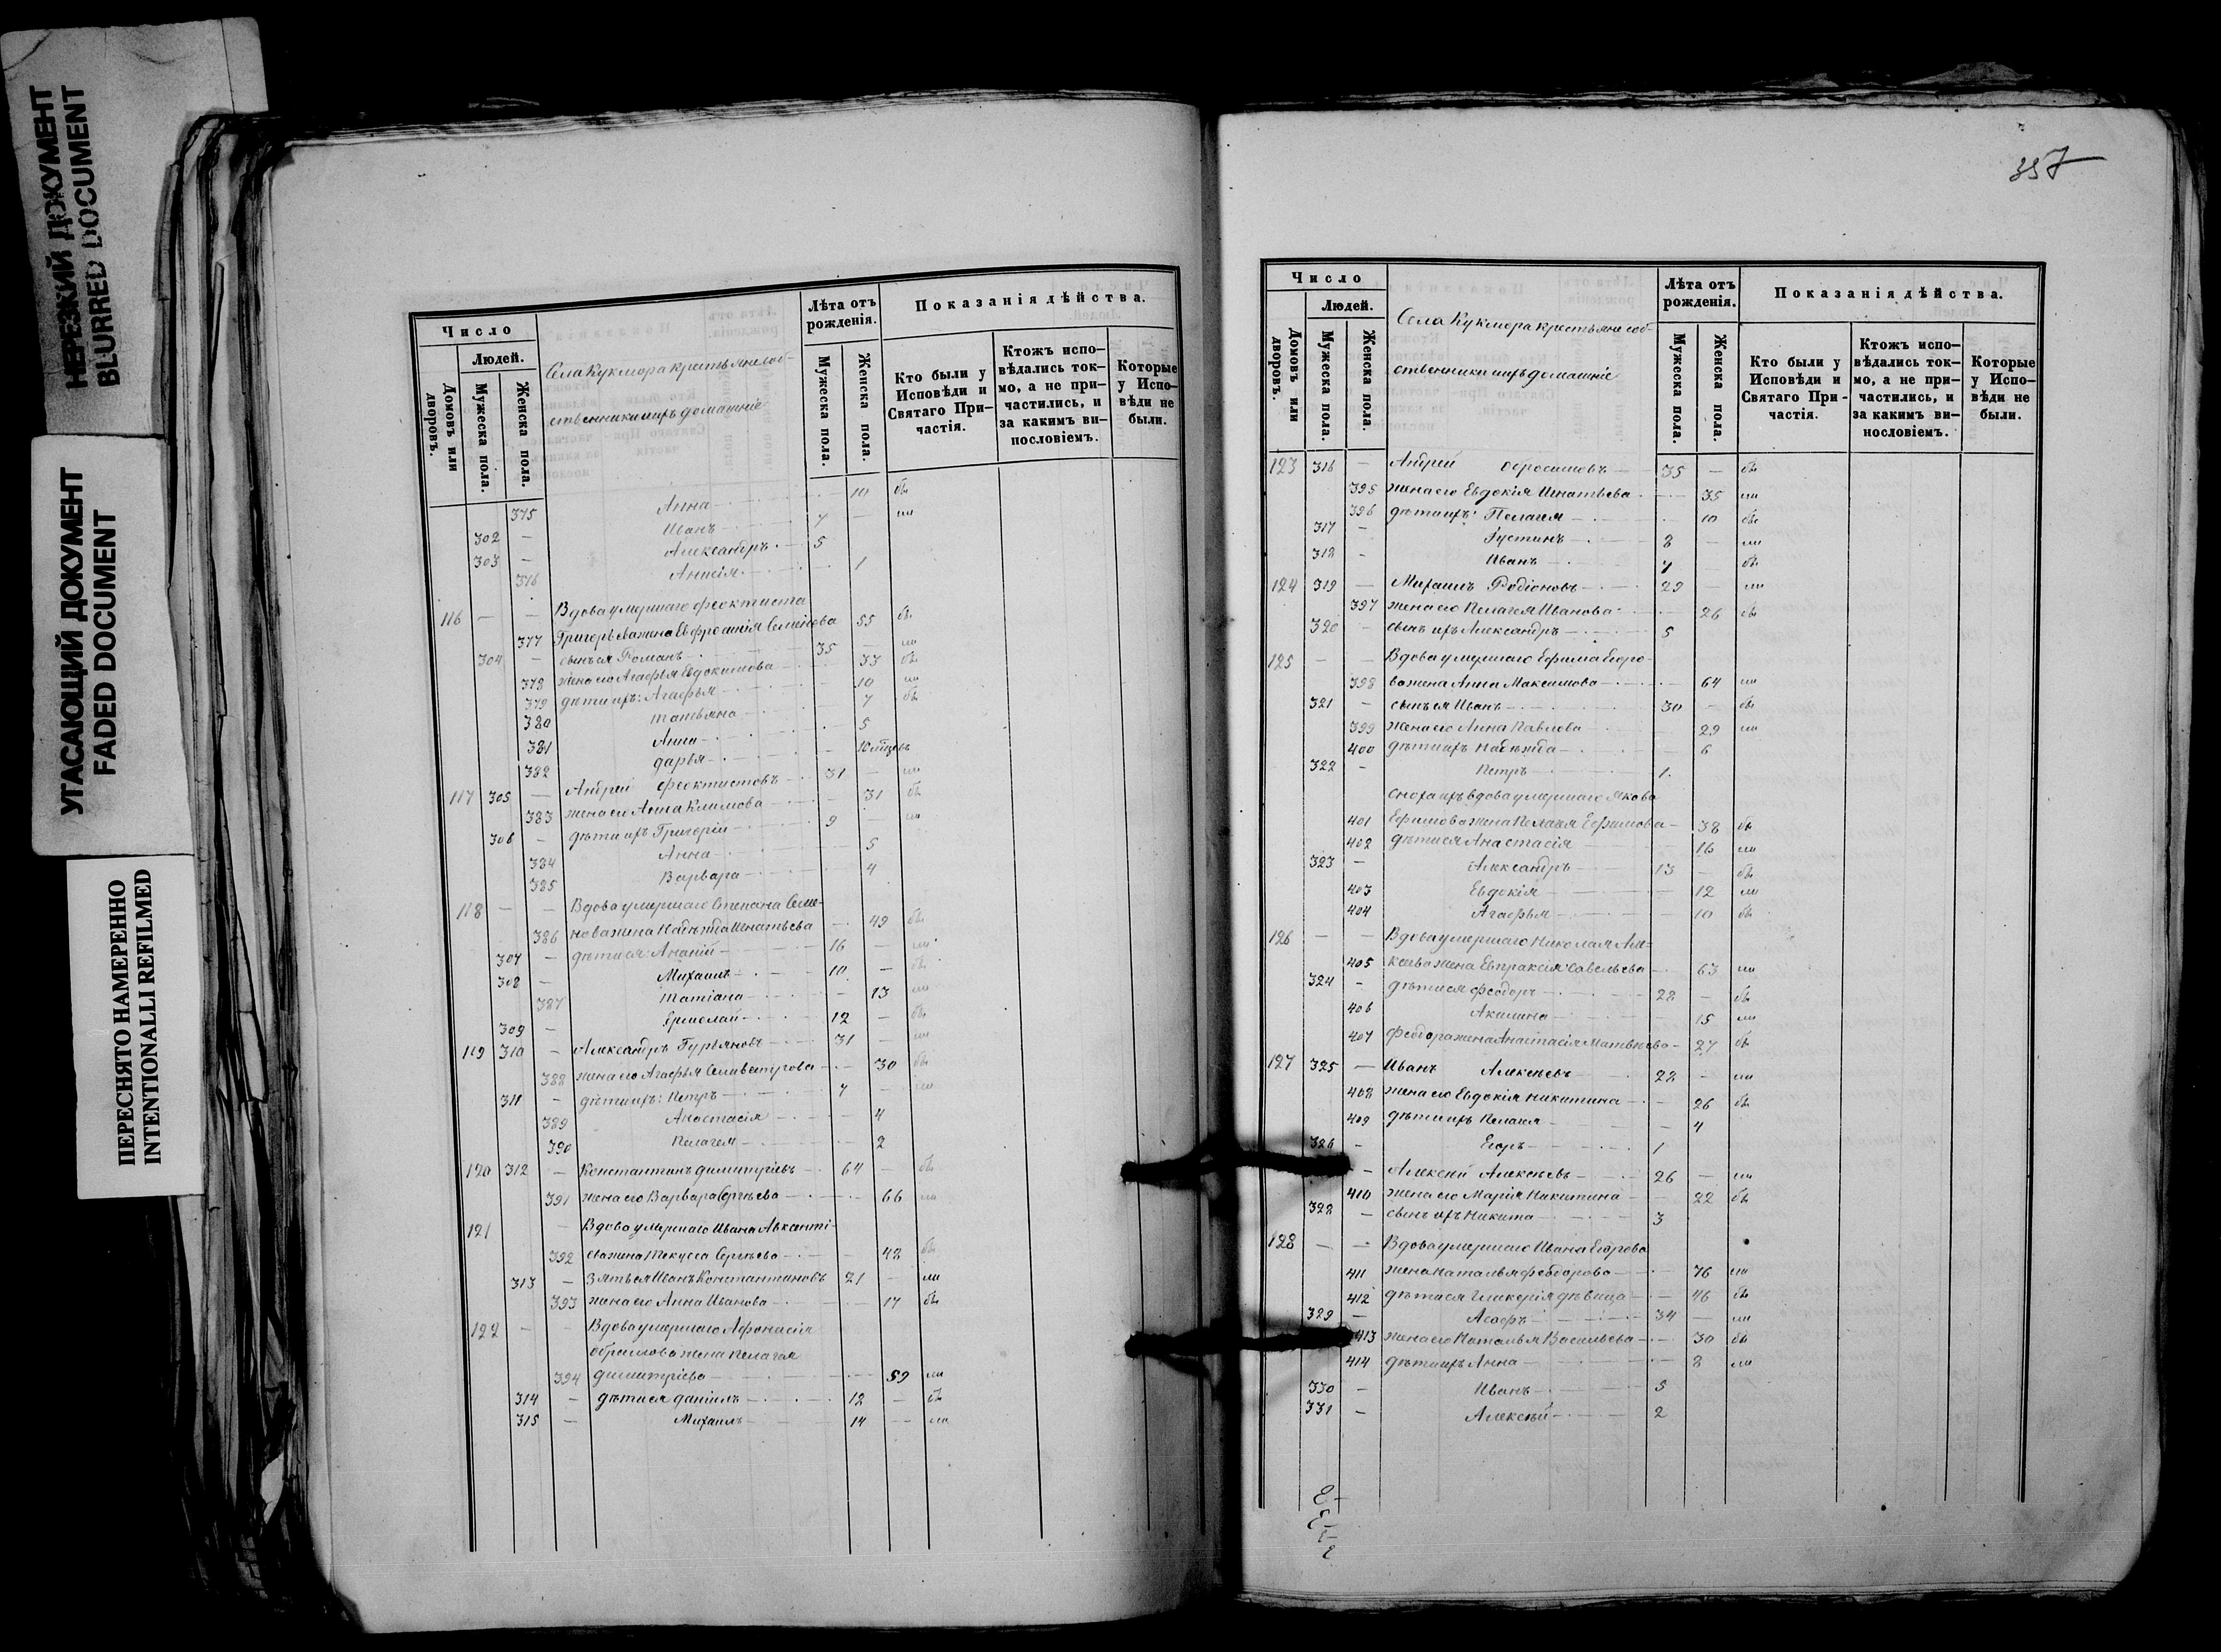 НЕРЕЗКИЙ ДОКУМЕНТ
BLURRED DOCUMENT
УГАСАЮЩИЙ ДОКУМЕНТ
FADED DOCUMENT
ПЕРЕСНЯТО НАМЕРЕННО
INTENTIONALLI REFILMED
Число
Людей.
Домовъ или дворовъ.
Мужеска пола.
Женска пола.
Села Кукмора крестьяне соб-
ственники ихъ домашніе
Лѣта отъ рожденія.
Мужеска пола.
Женска пола.
Показанія дѣйства.
Кто были у Исповѣди и Святаго При-частія.
Ктожъ испо-вѣдались ток-мо, а не при-частились, и за какимъ ви-нословіемъ.
Которые у Испо-вѣди не были.
375 Анна 10 бы
302 — Иванъ 7 — ли
303 — Александръ 5
376 Анисія 1
116 — — Вдова умершаго Феоктиста
377 Григорьева жена Евфросинія Семенова 55 бы
304 — сынъ ея Романъ 35 — ли
378 жена его Агафья Евдокимова 33 бы
379 дѣти ихъ: Агафья 10 ли
380 Татьяна 7 бы
381 Анна 5
382 Дарья
117 305 — Андрей Феоктистовъ 31 — ли
383 жена его Анна Климова — 31 бы
306 — дѣти ихъ Григорій 9 — ли
384 Анна 5
385 Варвара 4
118 — — Вдова умершаго Степана Семе-
386 нова жена Надежда Игнатьева — 49 бы
307 — дѣти ея: Ананій 16 — ли
308 — Михаилъ 10 — бы
387 Татіана — 13 ли
309 — Ермолай 12 — бы
119 310 — Александръ Гурьяновъ 31 — ли
388 жена его Агафья Селивестрова — 30 бы
311 — дѣти ихъ: Петръ 7 — ли
389 Анастасія 4
390 Пелагея 2
120 312 — Константинъ Димитріевъ 64 — бы
391 жена его Варвара Сергѣева — 66 ли
121 — Вдова умершаго Ивана Авксенті-
392 ева жена Текуса Сергѣева — 48 бы
313 — Зять ея Иванъ Константиновъ 21 — ли
393 жена его Анна Иванова — 17 бы
122 — — Вдова умершаго Афонасія
жена Пелагея
394 Димитріева 59 ли
314 — дѣти ея Даніилъ 12 — бы
315 — Михаилъ 14 — ли
357
Число
Людей.
Домовъ или дворовъ.
Мужеска пола.
Женска пола.
Села Кукмора крестьяне соб-
ственники ихъ домашніе
Лѣта отъ рожденія.
Мужеска пола.
Женска пола.
Показанія дѣйства.
Кто были у Исповѣди и Святаго При-частія.
Ктожъ испо-вѣдались ток-мо, а не при-частились, и за какимъ ви-нословіемъ.
Которые у Испо-вѣди не были.
123 316 — Андрей 35 — бы
395 жена его Евдокія Игнатьева 35 ли
396 дѣти ихъ: Пелагея 10 бы
317 — Густинъ 8 — ли
318 — Иванъ 7 — бы
124 319 — Михаилъ Родіоновъ 29 — ли
397 жена его Пелагея Иванова — 26 бы
320 — сынъ ихъ Александръ 5
125 — — Вдова умершаго Ефима Егоро-
398 ва жена Анна Максимова — 64 ли
321 — сынъ ея Иванъ 30 — бы
399 жена его Анна Павлова 29 ли
400 дѣти ихъ Надежда — 6
322 — Петръ 1
сноха ихъ вдова умершаго Якова
401 Ефимова жена Пелагея Ефимова — 38 бы
402 дѣти ея Анастасія 16 ли
323 — Александръ 13 — бы
403 Евдокія — 12 ли
404 Агафья — 10 бы
126 — — Вдова умершаго Николая Але-
405 жена Евпраксія Савельева — 63 ли
324 — дѣти ея Феодоръ 28 — бы
406 Акилина 15 ли
407 Феодора жена Анастасія Матвѣева — 27 бы
127 325 — Иванъ Алексѣевъ 28 — ли
408 жена его Евдокія Никитина — 26 бы
409 дѣти ихъ Пелагея — 4
326 — Егоръ 1
— Алексій Алексѣевъ 26 — ли
410 жена его Марія Никитина — 22 бы
328 — сынъ ихъ Никита 3
128 — — Вдова умершаго Ивана Егорова
411 жена Наталья Феодорова — 76 ли
412 дѣти ея Гликерія дѣвица — 46 бы
329 — 34 — ли
413 жена его Наталья Васильева — 30 бы
414 дѣти ихъ Анна — 8 ли
330 — Иванъ 5
331 — Алексѣй 2